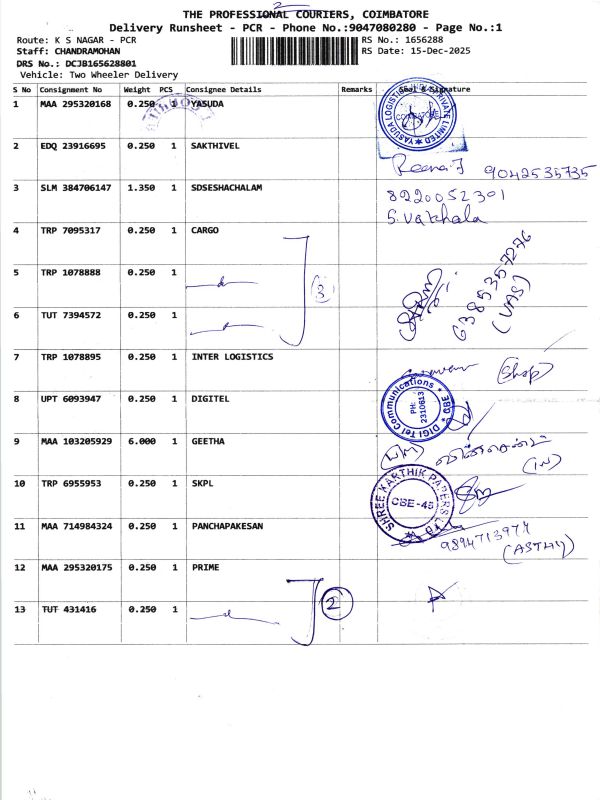 THE PROFESSIONAL COURIERS, COIMBATORE
Delivery Runsheet - PCR - Phone No.:9047080280 - Page No.:1
Route: K S NAGAR - PCR
RS No.: 1656288
Staff: CHANDRAMOHAN
RS Date: 15-Dec-2025
DRS No.: DCJB165628801
Vehicle: Two Wheeler Delivery
S No Consignment No Weight PCS Consignee Details Remarks Seal & Signature
1 MAA 295320168 0.250 1 YASUDA
YASUDA LOGISTICS PRIVATE LIMITED
COIMBATORE
2 EDQ 23916695 0.250 1 SAKTHIVEL
Reena.J 9042535735
3 SLM 384706147 1.350 1 SDSESHACHALAM
8220052301
S.Vatchala
4 TRP 7095317 0.250 1 CARGO
5 TRP 1078888 0.250 1
3
6385357276
(VAS)
6 TUT 7394572 0.250 1
7 TRP 1078895 0.250 1 INTER LOGISTICS
(Shop)
8 UPT 6093947 0.250 1 DIGITEL
DIGITel Communications * CBE *
PH:
2310613
9 MAA 103205929 6.000 1 GEETHA
(IN)
10 TRP 6955953 0.250 1 SKPL
SHREE KARTHIK PAPERS LTD
CBE-45
11 MAA 714984324 0.250 1 PANCHAPAKESAN
9894713974
12 MAA 295320175 0.250 1 PRIME
13 TUT 431416 0.250 1
2